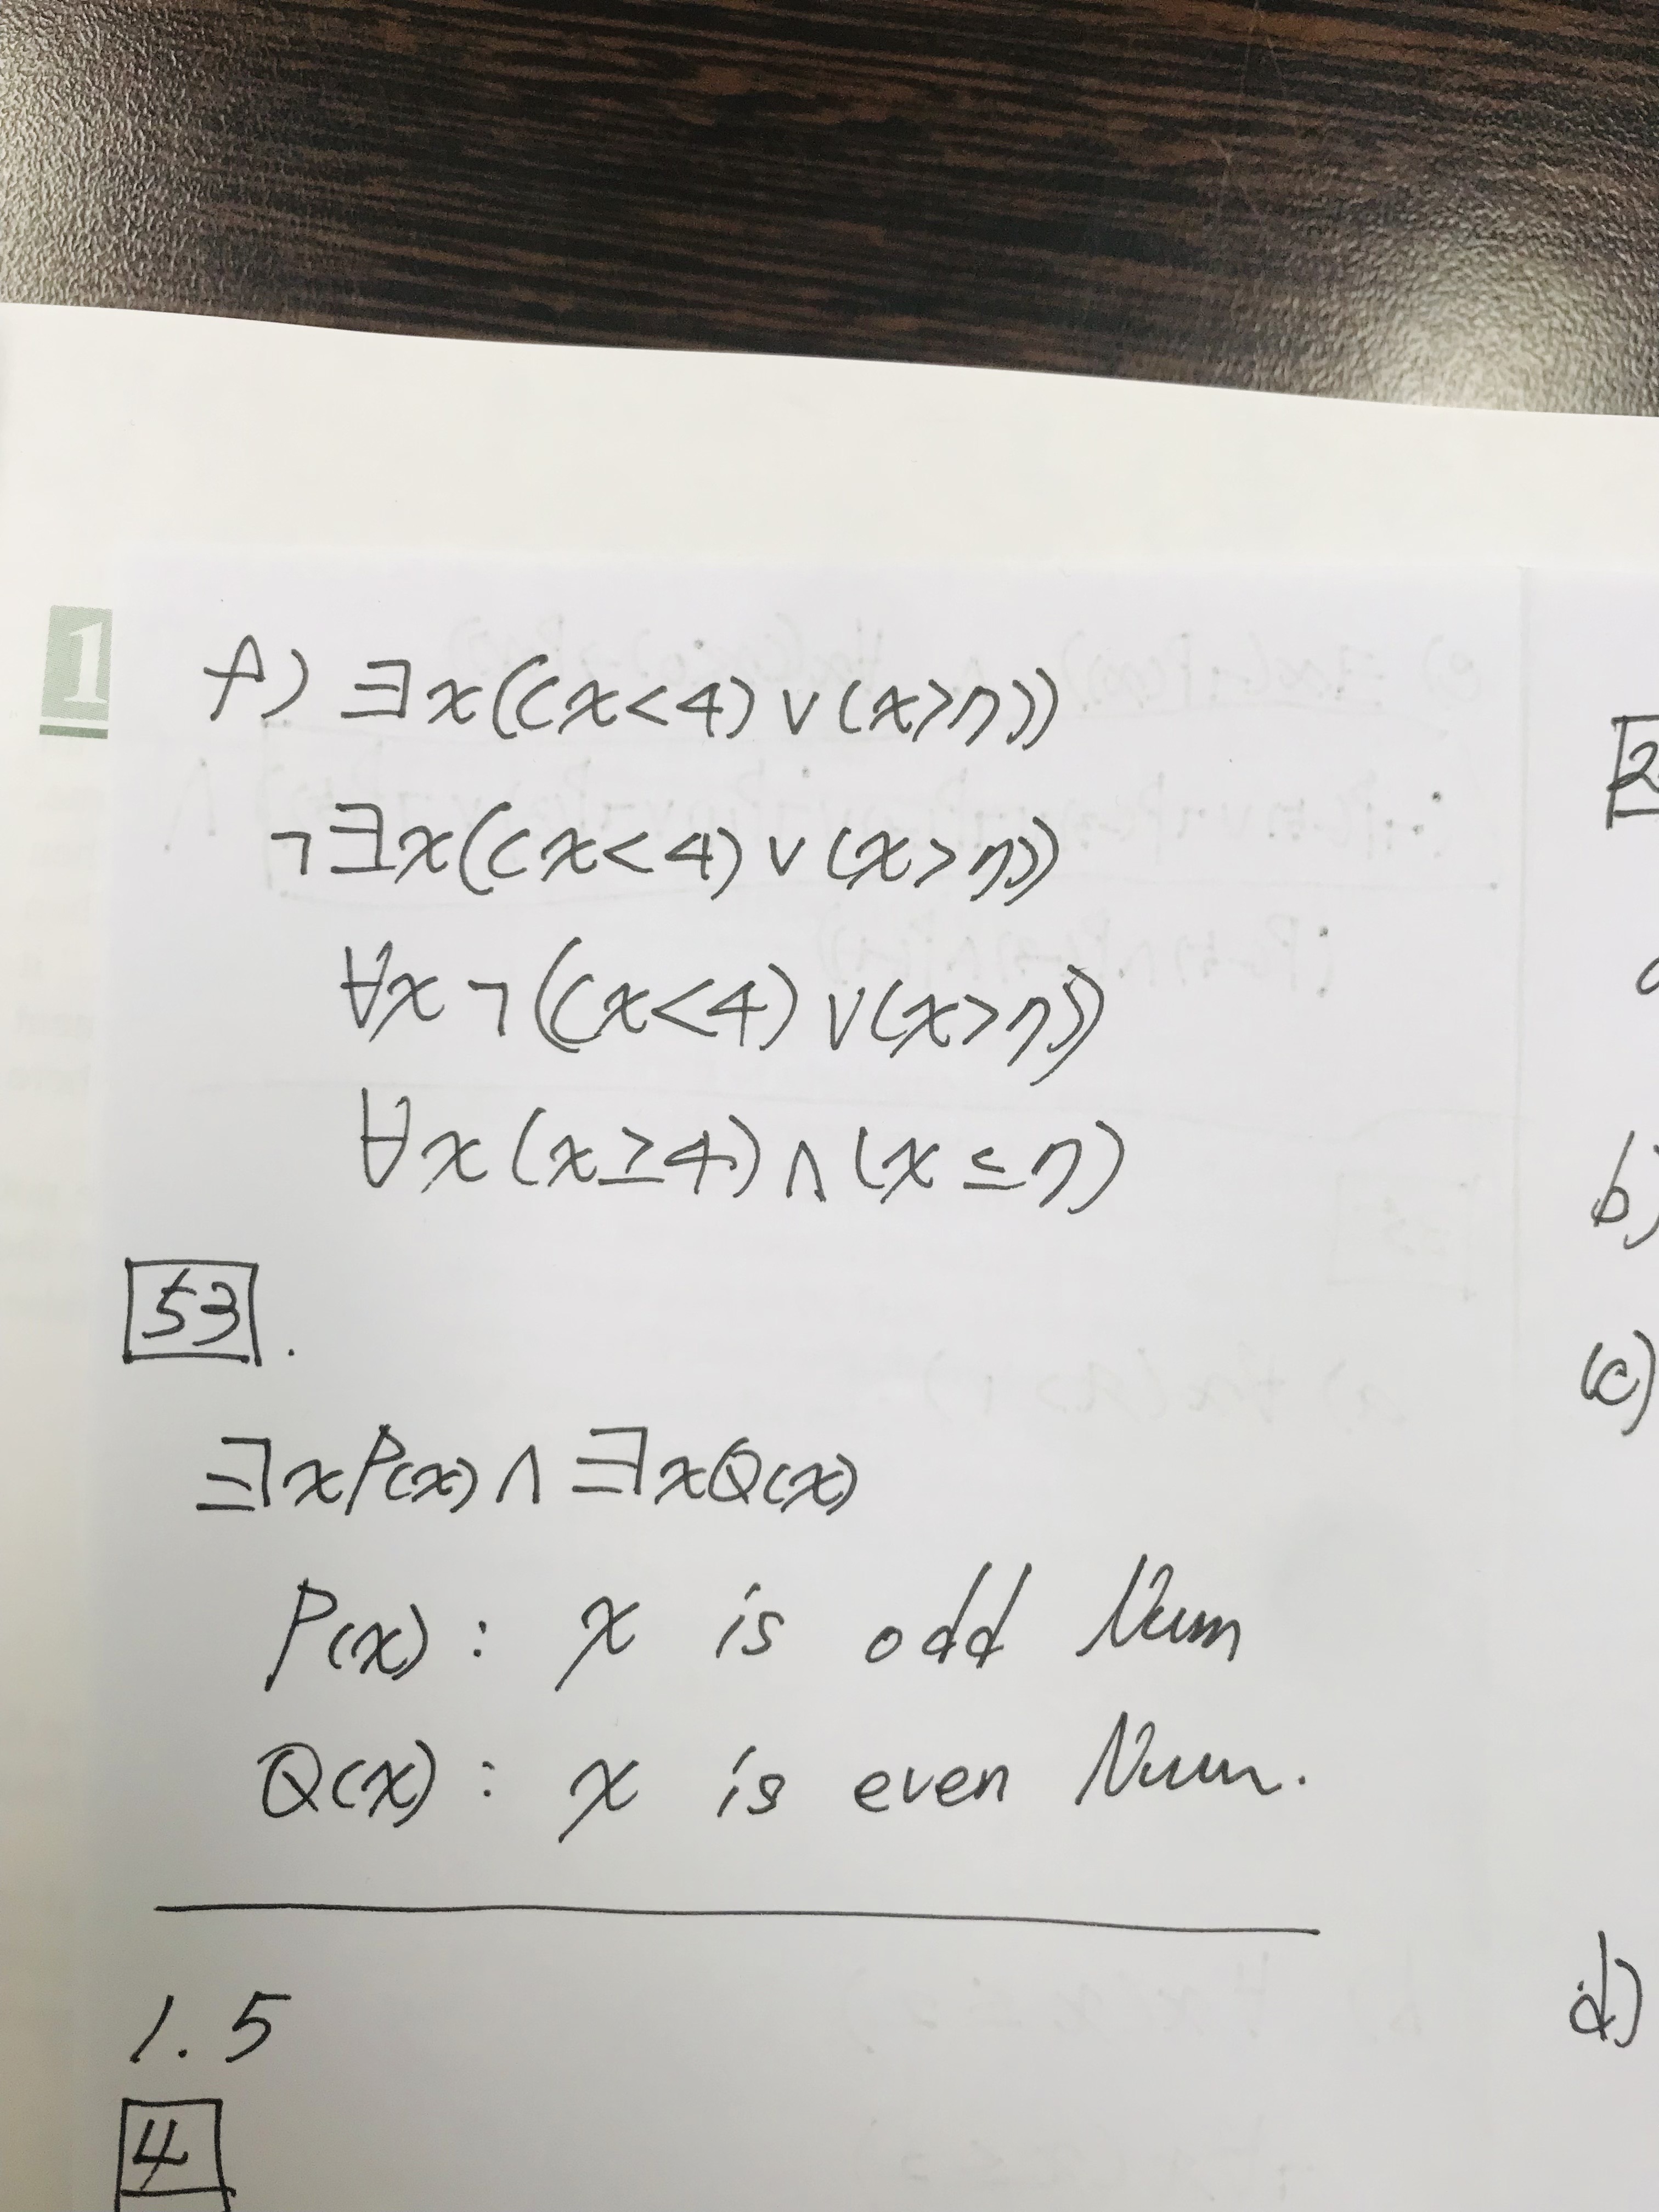 1
f) ∃x((x<4) ∨ (x>7))
¬∃x((x<4) ∨ (x>7))
∀x ¬((x<4) ∨ (x>7))
∀x (x≥4) ∧ (x≤7)
53.
∃xP(x) ∧ ∃xQ(x)
P(x) : x is odd Num
Q(x) : x is even Num.
1.5
4
2
b)
(c)
d)